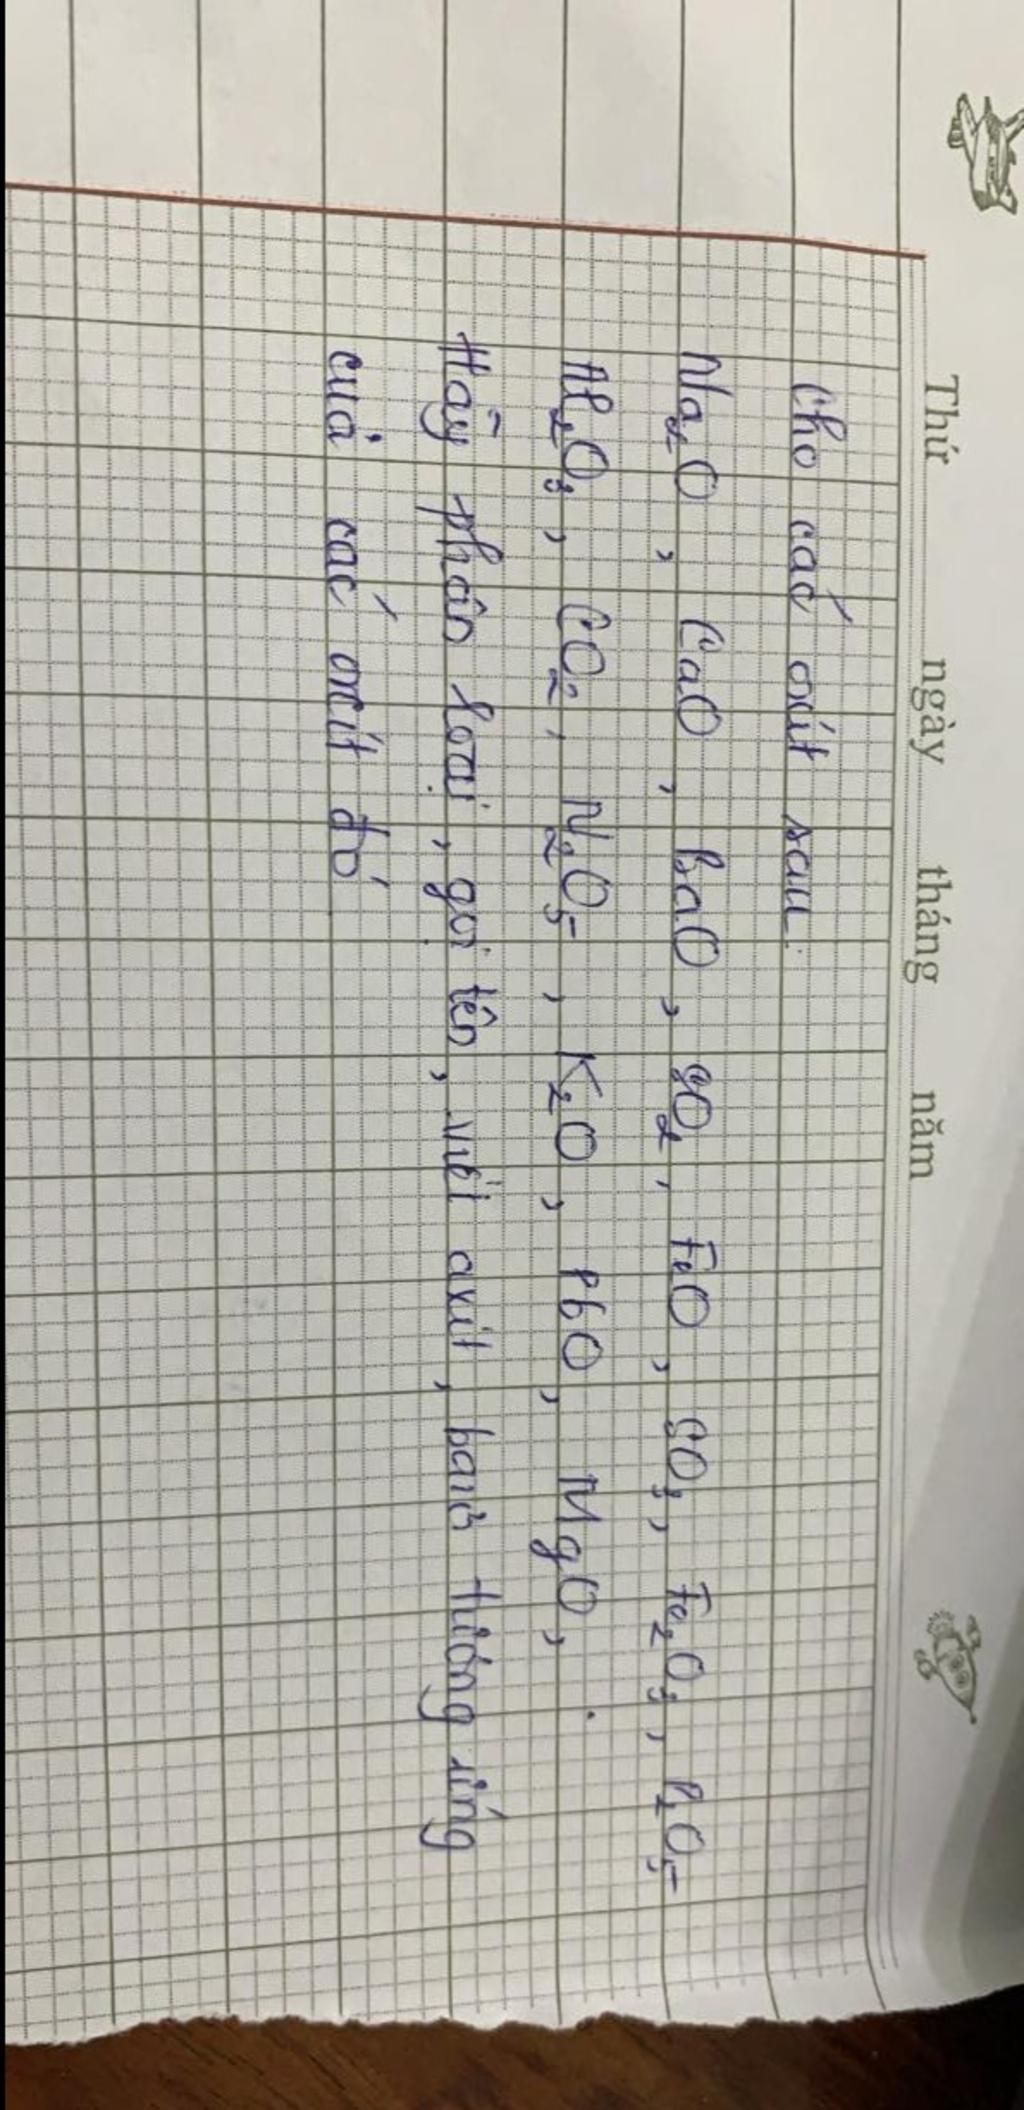 Thứ ngày tháng năm
Cho các oxit sau:
Na₂O, CaO, BaO, SO₂, FeO, SO₃, Fe₂O₃, P₂O₅
Al₂O₃, CO₂, N₂O₅, K₂O, PbO, MgO,
Hãy phân loại, gọi tên, viết axit, bazơ tương ứng
của các oxit đó